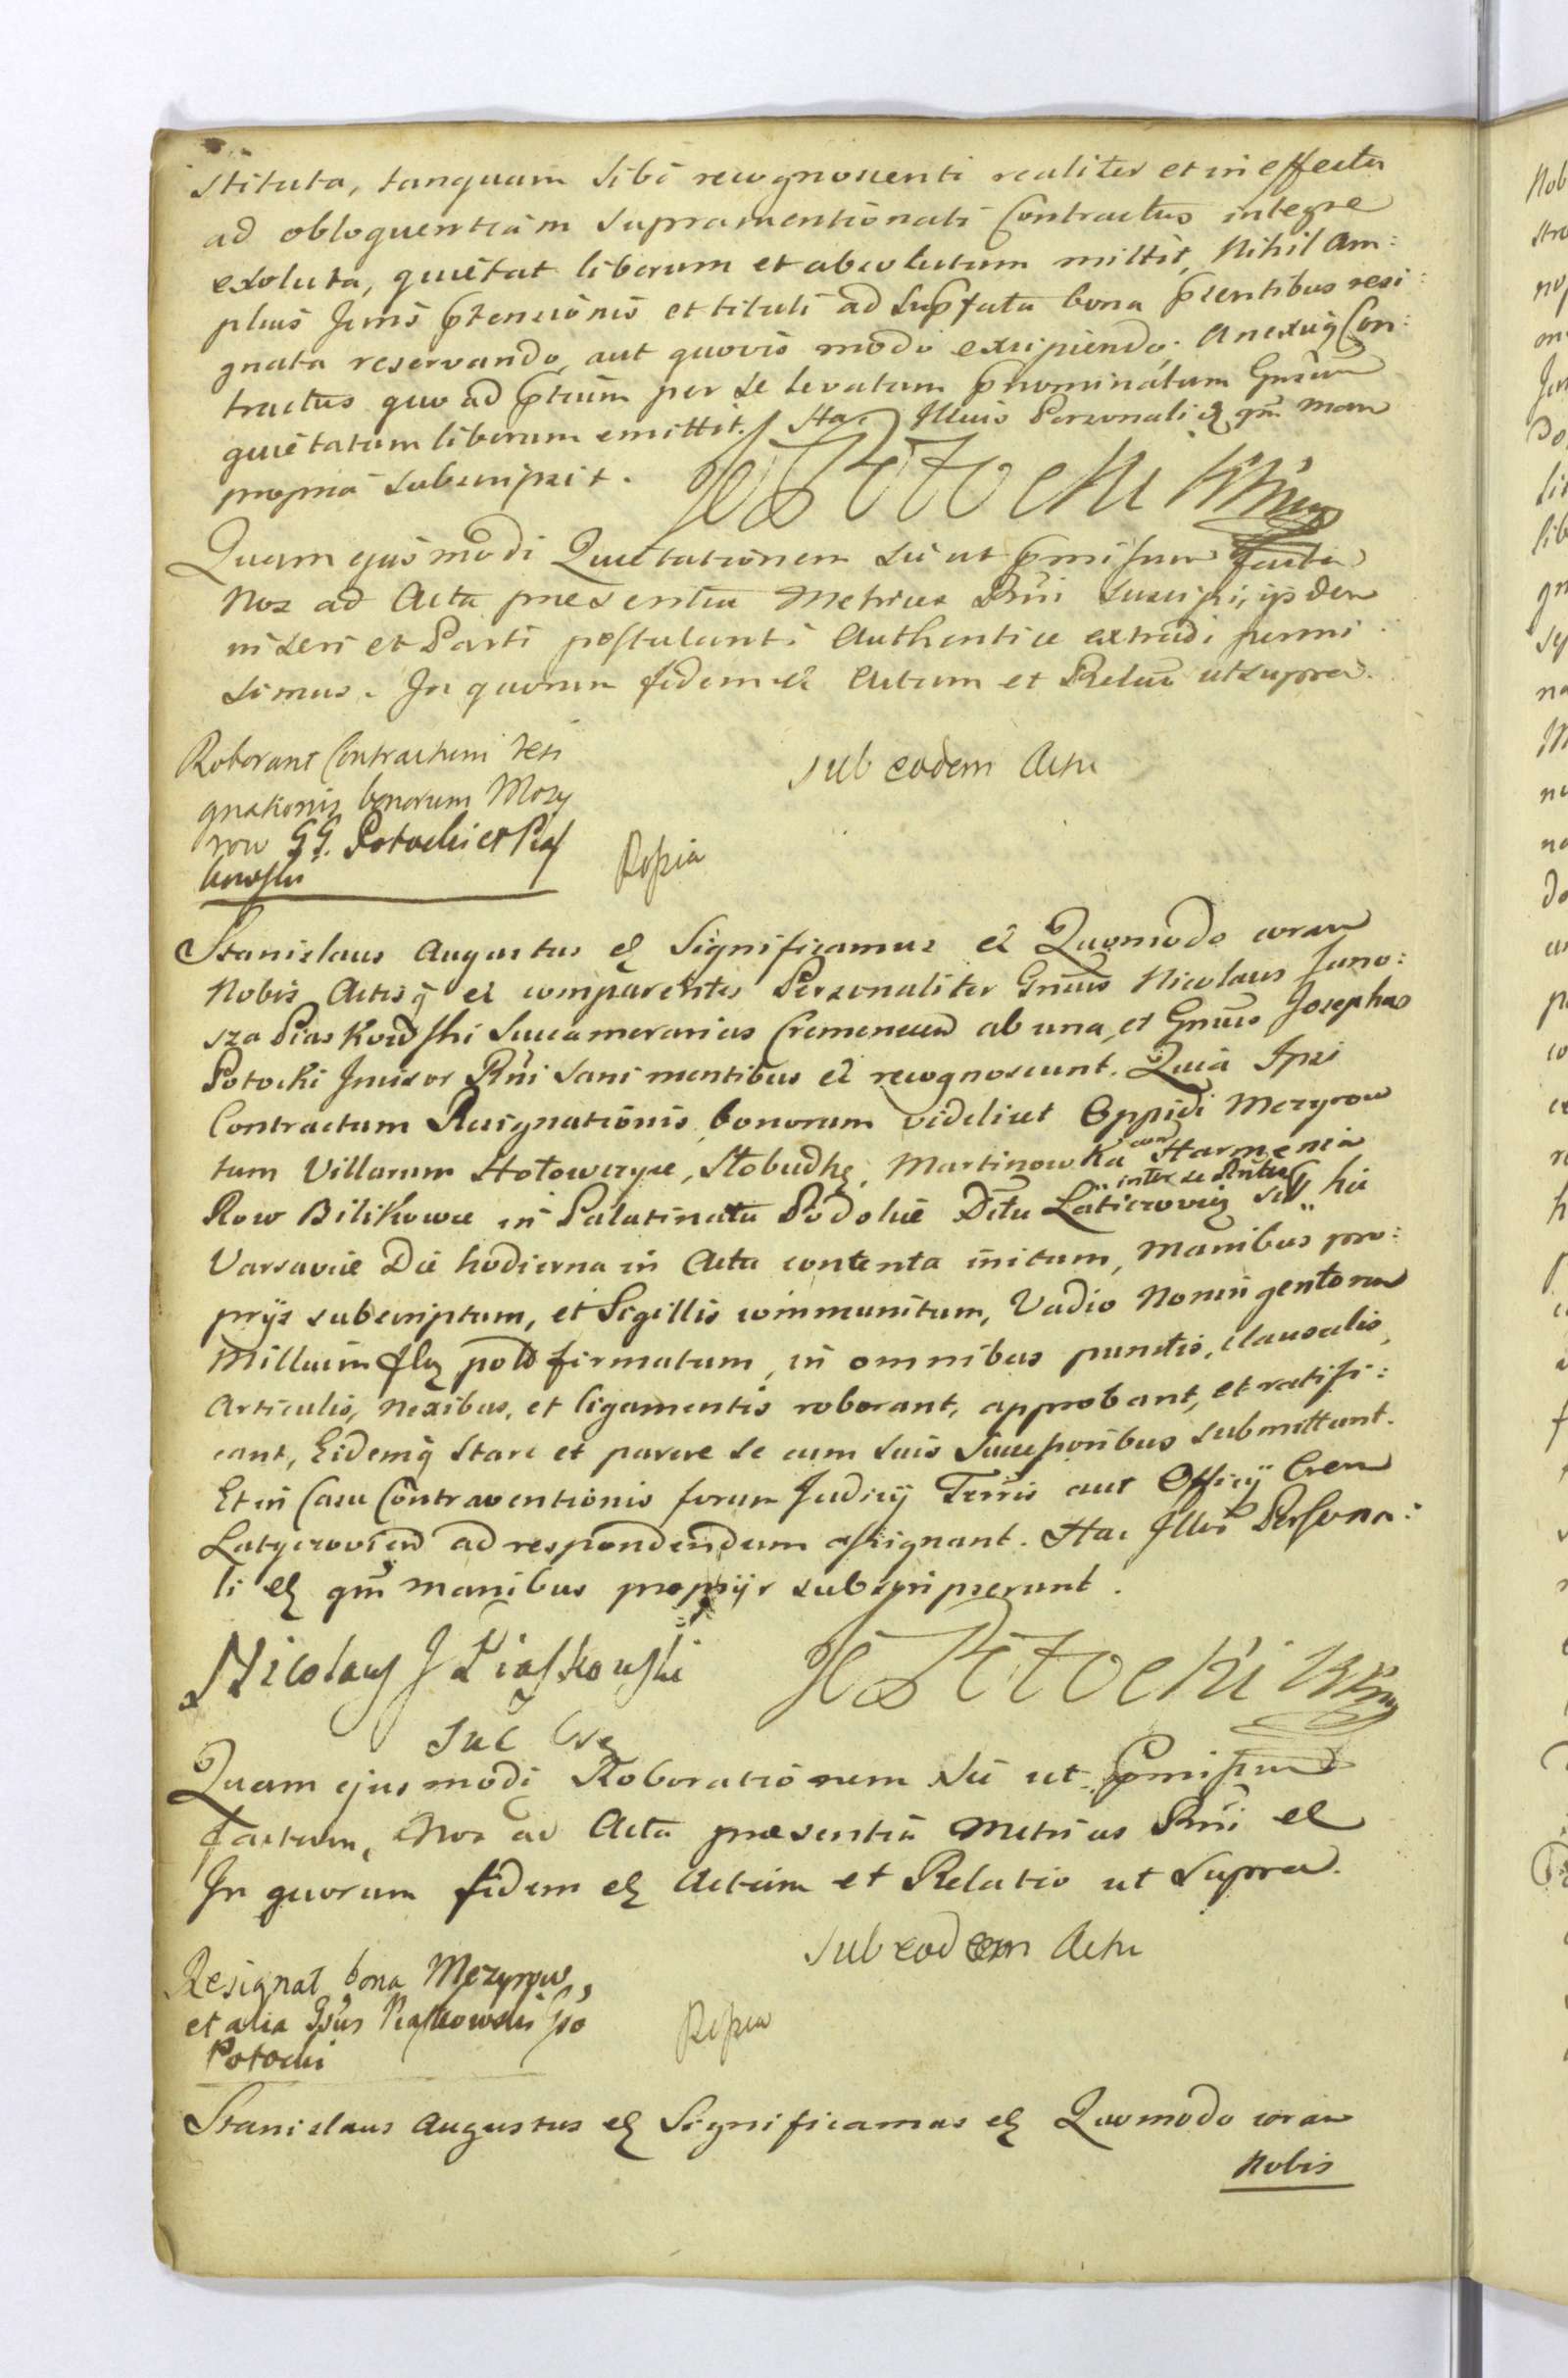 stituta, tanquam sibi recognoscenti realiter et in effectu
ad obloquentiam supramentionati Contractus integre
exoluta, quietat liberum et absolutum mittit, Nihil Am:
plius Juris ptensionis et tituli ad supfata bona psentibus resi:
gnata reservando, aut quovis modo excipiendo. Anexiq Con:
tractus quo ad ptium per se levatum pnominatum Gnsum
quietatum liberum emittit. Hac Illius Personali el qm manu
propria subscripsit.
Potocki
Quam ejusmodi Quietationem sic ut pmissum facta
Nos ad Acta praesentia Metrices Rni suscipi, ijsdem
inseri et Parti postulanti Authentice extradi permi:
simus. In quorum fidem el Actum et Relatio ut supra.
Roborant Contractum resi
gnationis bonorum Mezy
row GG. Potocki et Pias
kowski
sub eodem Actu
Kopia
Stanislaus Augustus el Significamus el Quomodo coram
Nobis Actisq el comparentes Personaliter Gnsus Nicolaus Juno:
sza Piaskowski Succamerarius Cremenecen ab una, et Gnsus Josephus
Potocki Incisor Rni sani mentibus el recognoscunt. Quia Ipsi
Contractum Resignationis bonorum videlicet Oppidi Mezyrow
tum Villarum Hołowczyce, Słobudkę, Martinowka cum Harmenia
Row Bilikowce in Palatinatu Podoliae Dctu Laticzovien sit " hic
" inter se
Varsaviae Die hodierna in Acta contenta initum, Manibus pro:
prijs subscriptum, et Sigillis communitum, Vadio Noningentorum
Millium flor pold firmatum, in omnibus punctis, clausulis,
Articulis, nexibus, et ligamentis roborant, approbant, et ratifi:
cant, Eidemq stare et parere se cum suis Successoribus submittunt.
Et in Casu Contraventionis forum Judicij Terris aut Officij Cren
Latyczovien ad respondendum assignant. Hac Illor Persona:
li el qm manibus proprijs subscripserunt.
Nicolaus J Piaskowski
Potocki
Quam ejusmodi Roborationem sic ut pmissum
factum, Nos ad Acta praesentia Metrices Rni el
In quorum fidem el Actum et Relatio ut supra.
sub eodem Actu
Resignat bona Mezyrow,
et alia Gsus Piaskowski Gso
Potocki
Kopia
Stanislaus Augustus el Significamus el Quomodo coram
Nobis